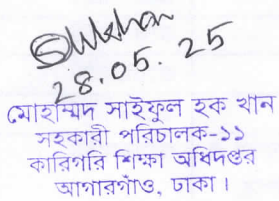 28.05.25
মোহাম্মদ সাইফুল হক খান
সহকারী পরিচালক-১১
কারিগরি শিক্ষা অধিদপ্তর
আগারগাঁও, ঢাকা।